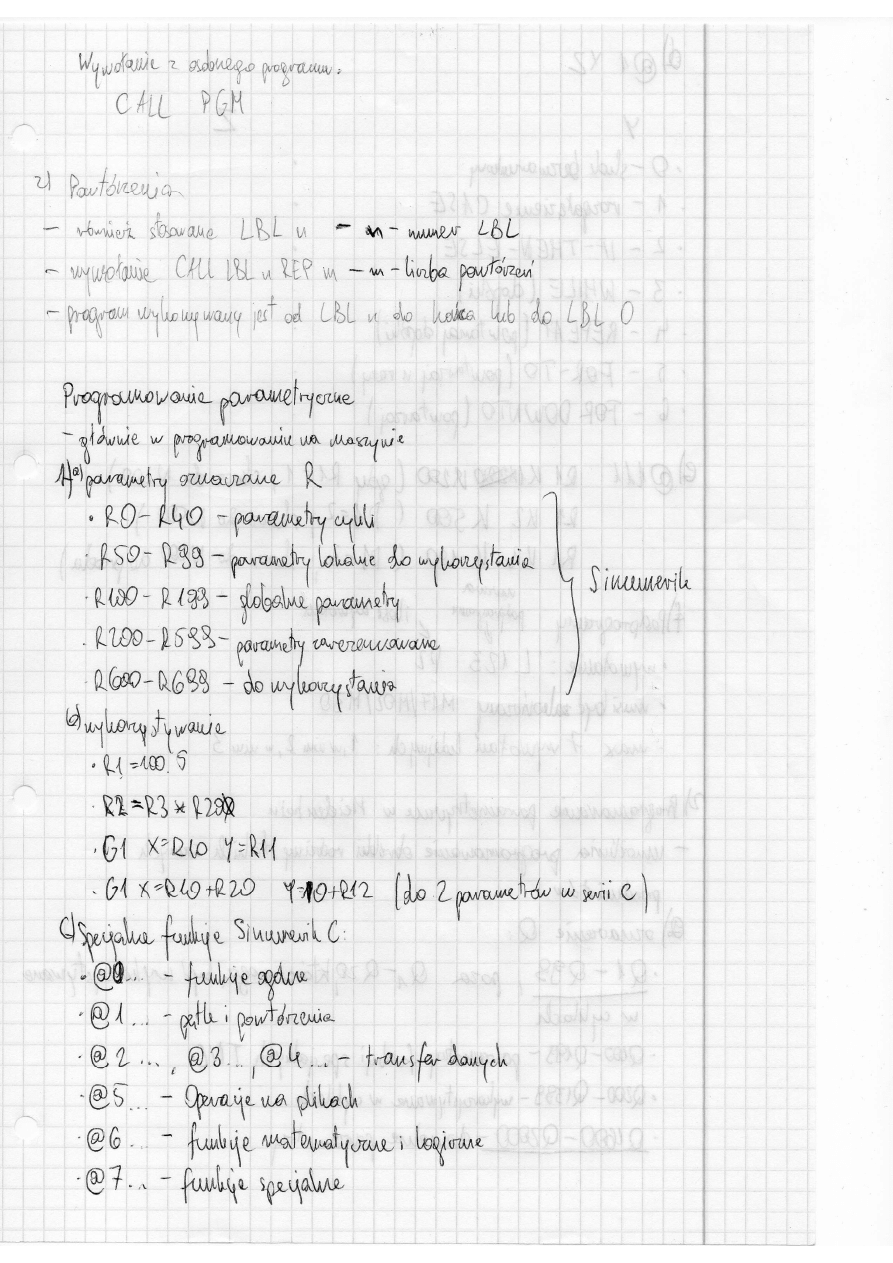 Wywołanie z osobnego programu.
CALL PGM
2) Powtórzenia
- również stosowane LBL n - n - numer LBL
- wywołanie CALL LBL n REP m - m - liczba powtórzeń
- program wykonywany jest od LBL n do końca lub do LBL 0
Programowanie parametryczne
- głównie w programowanie na maszynie
1) a) parametry oznaczane R
• R0 - R40 - parametry cykli
• R50 - R99 - parametry lokalne do wykorzystania
• R100 - R199 - globalne parametry
• R200 - R599 - parametry zarezerwowane
• R600 - R699 - do wykorzystania
Sinumerik
b) wykorzystywanie
• R1 = 100.5
• R2 = R3 * R20
• G1 X=R10 Y=R11
• G1 X=R10+R20 Y=10+R12 (do 2 parametrów w serii C)
c) Specjalne funkcje Sinumerik C:
• @0... - funkcje ogólne
• @1... - pętle i powtórzenia
• @2..., @3..., @4... - transfer danych
• @5... - Operacje na plikach
• @6... - funkcje matematyczne i logiczne
• @7... - funkcje specjalne